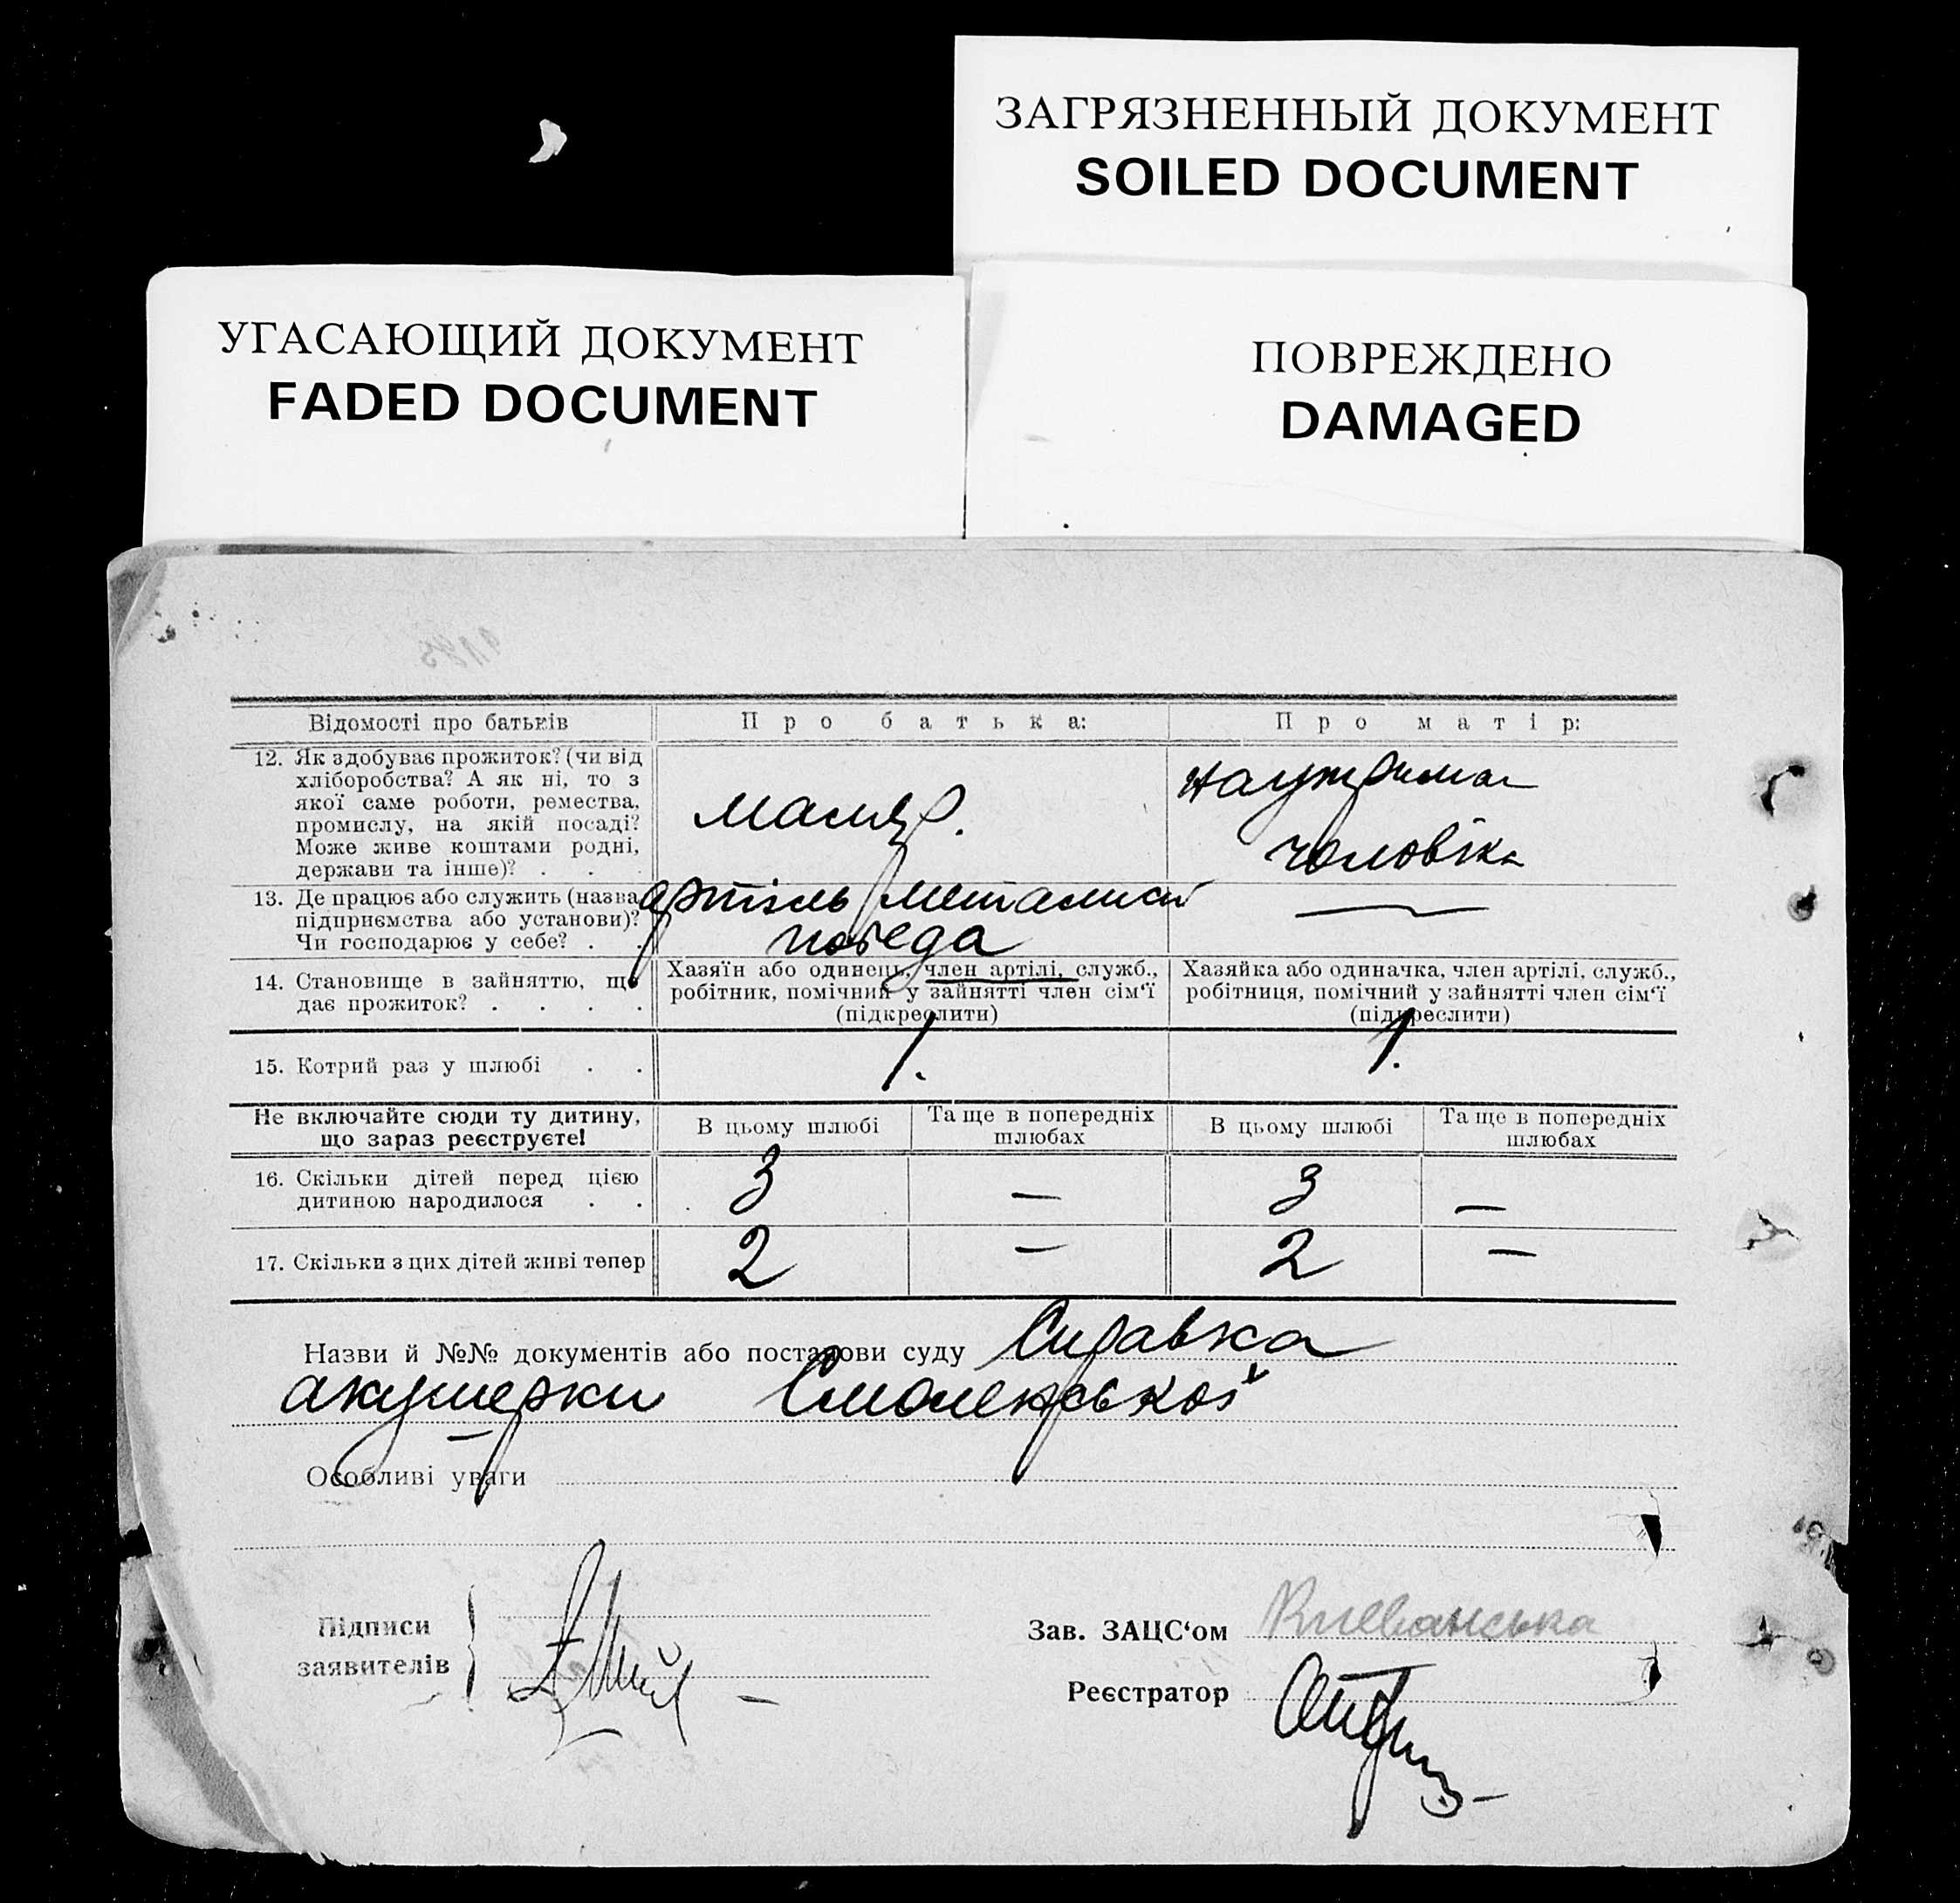 ЗАГРЯЗНЕННЫЙ ДОКУМЕНТ
SOILED DOCUMENT
УГАСАЮЩИЙ ДОКУМЕНТ
FADED DOCUMENT
ПОВРЕЖДЕНО
DAMAGED
Відомості про батьків
Про батька:
Про матір:
12. Як здобуває прожиток? (чи від
хліборобства? А як ні, то з
якої саме роботи, ремества,
промислу, на якій посаді?
Може живе коштами родні,
держави та інше)? . .
маляр.
на утрим
чоловіка
13. Де працює або служить (назва
підприємства або установи)?
Чи господарює у себе? . .
артіль металист
победа
—
14. Становище в зайняттю, що
дає прожиток? . . . .
Хазяїн або одинець, член артілі, служб.,
робітник, помічний у зайнятті член сім‘ї
(підкреслити)
Хазяйка або одиначка, член артілі, служб.,
робітниця, помічний у зайнятті член сім‘ї
(підкреслити)
15. Котрий раз у шлюбі . .
1.
1.
Не включайте сюди ту дитину,
що зараз реєструєте!
В цьому шлюбі
Та ще в попередніх
шлюбах
В цьому шлюбі
Та ще в попередніх
шлюбах
16. Скільки дітей перед цією
дитиною народилося . .
3
—
3
—
17. Скільки з цих дітей живі тепер
2
—
2
—
Назви й №№ документів або постанови суду Справка
акушерки Смоленської
Особливі уваги
Підписи
заявителів
Зав. ЗАЦС‘ом
Реєстратор